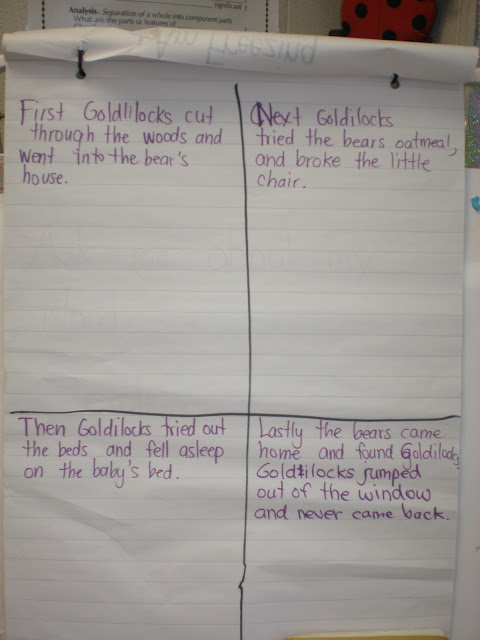 significant
Analysis- Separation of a whole into component parts
What are the parts or features of
Am Freezing
First Goldlilocks cut
through the woods and
went into the bear's
house.
Next Goldilocks
tried the bears oatmeal,
and broke the little
chair.
Then Goldilocks tried out
the beds and fell asleep
on the baby's bed.
Lastly the bears came
home and found Goldilocks
Goldilocks jumped
out of the window
and never came back.